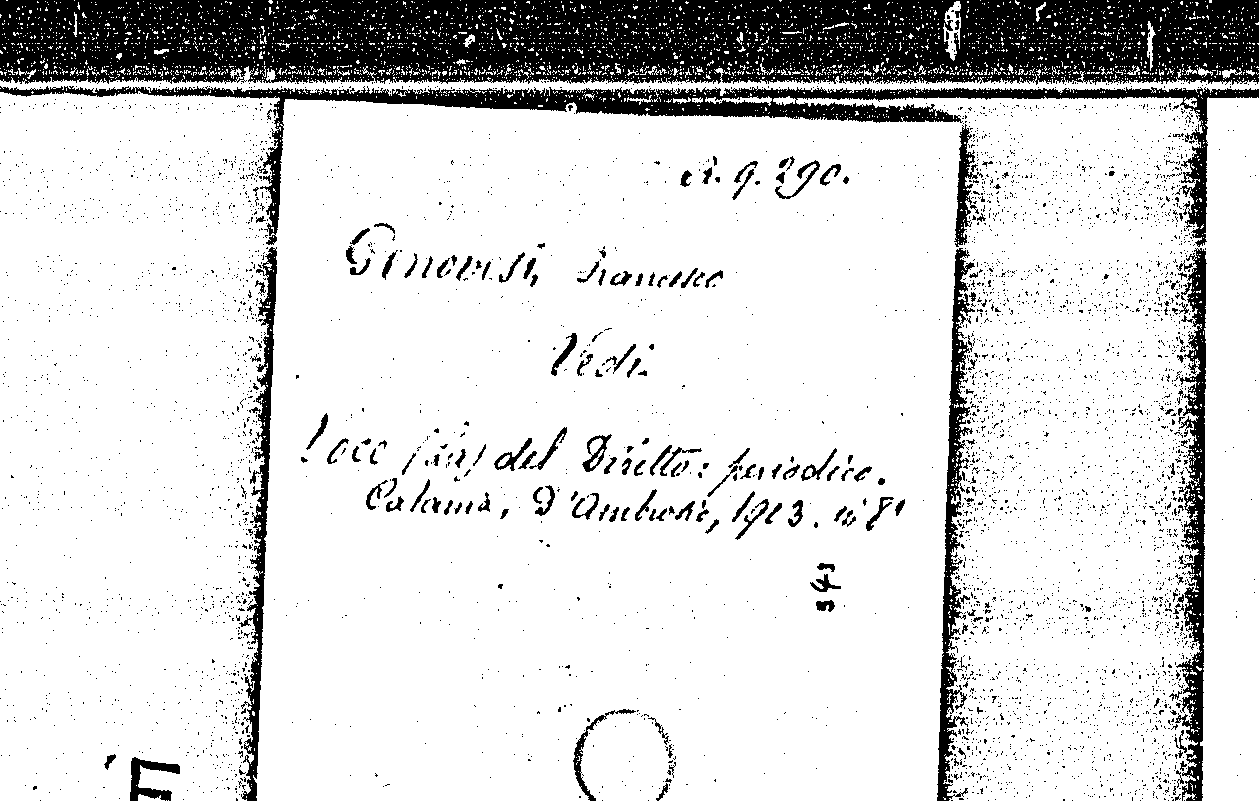 A. 9. 290.
Genovesi, Francesco
Vedi
Voce (La) del Diritto: periodico.
Catania, D'Ambrosi, 1913. in 8°
343